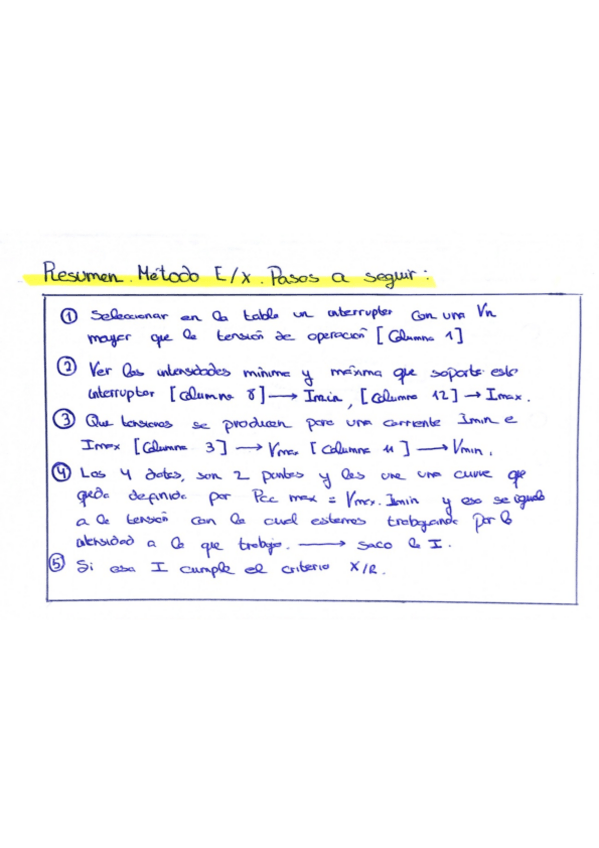 Resumen. Método E/X. Pasos a seguir:
① Seleccionar en la tabla un interruptor con una Vn
mayor que la tensión de operación [Columna 1]
② Ver las intensidades mínima y máxima que soporta este
interruptor [columna 8] → Imin, [Columna 12] → Imax.
③ Que tensiones se producen para una corriente Imin e
Imax [Columna 3] → Vmax [Columna 11] → Vmin.
④ Los 4 datos, son 2 puntos y les une una curva que
queda definida por Pcc max = Vmax. Imin y eso se iguala
a la tensión con la cual estemos trabajando por la
intensidad a la que trabajo. → saco la I.
⑤ Si esa I cumple el criterio X/R.